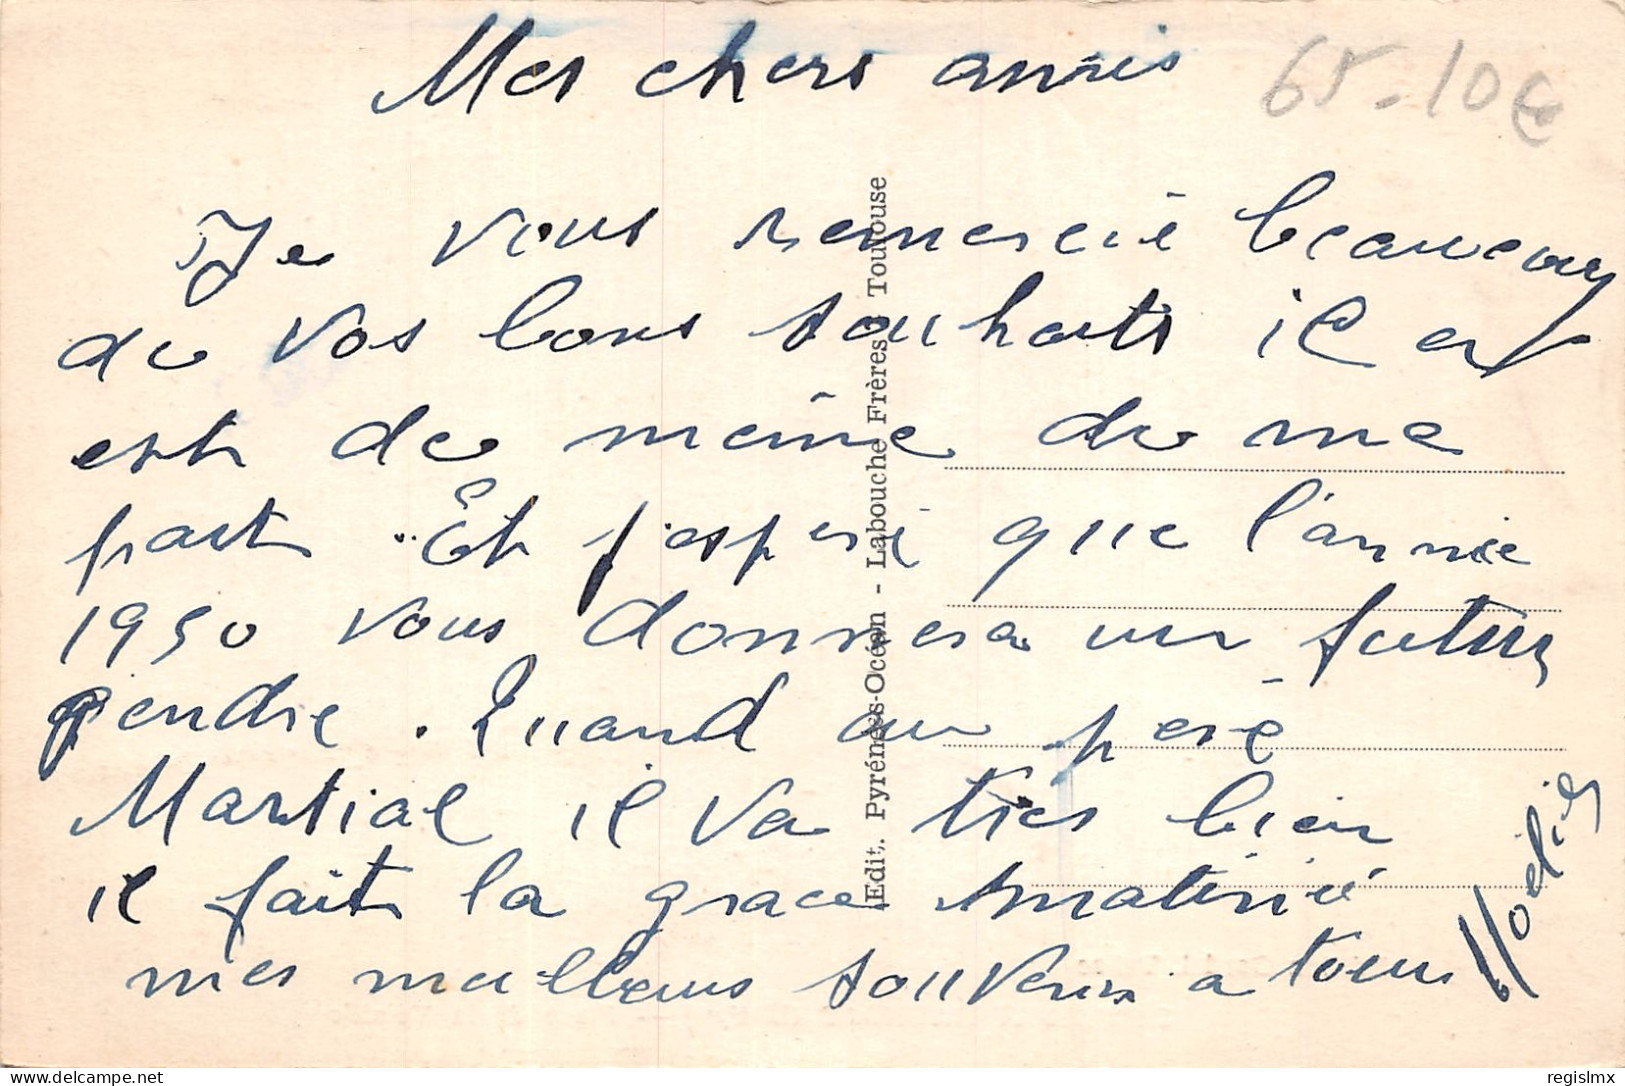 Mes chers amis
65-10€
Je vous remercie beaucoup
de vos bons souhaits il en
est de même de ma
part. Et j'espère que l'année
1950 vous donnera un futur
gendre. Quand au père
Martial il va très bien
il fait la grace matinée
mes meilleurs souvenirs a tous
Edit. Pyrénées-Océan - Labouche Frères Toulouse
delcampe.net
regislmx